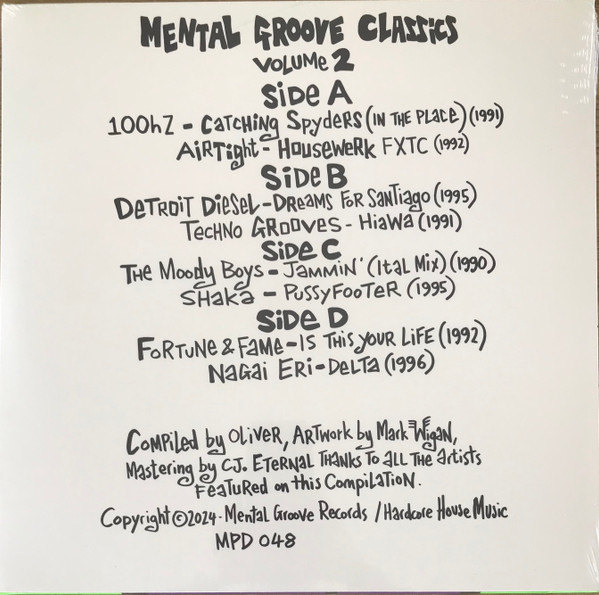 MENTAL GROOVE CLASSICS
VOLUME 2
SIDE A
100hZ - CATCHING SPYDERS (IN THE PLACE) (1991)
AIRTIGHT - HOUSEWERK FXTC (1992)
SIDE B
DETROIT DIESEL - DREAMS FOR SANTIAGO (1995)
TECHNO GROOVES - HIAWA (1991)
SIDE C
THE MOODY BOYS - JAMMIN' (ITAL MIX) (1990)
SHAKA - PUSSYFOOTER (1995)
SIDE D
FORTUNE & FAME - IS THIS YOUR LIFE (1992)
NAGAI ERI - DELTA (1996)
COMPILED by OLIVER, ARTWORK by MARK WIGAN,
MASTERING by CJ. ETERNAL THANKS TO ALL THE ARTISTS
FEATURED on this COMPILATION.
Copyright © 2024 - MENTAL GROOVE RECORDS / HARDCORE HOUSE MUSIC
MPD 048